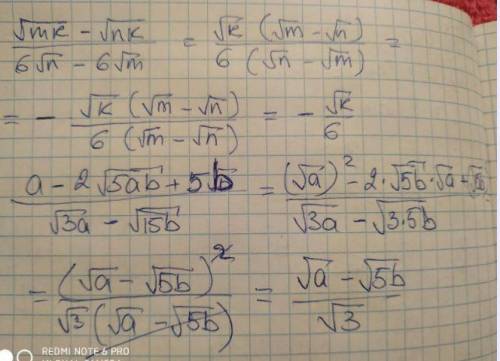 (√mk − √nk) / (6√n − 6√m) = √k (√m − √n) / 6 (√n − √m) =
= − √k (√m − √n) / 6 (√m − √n) = − √k / 6
(a − 2√5ab + 5b) / (√3a − √15b) = ((√a)² − 2·√5b·√a + √5b) / (√3a − √3·5b)
= (√a − √5b)² / √3 (√a − √5b) = (√a − √5b) / √3
REDMI NOTE 6 PRO